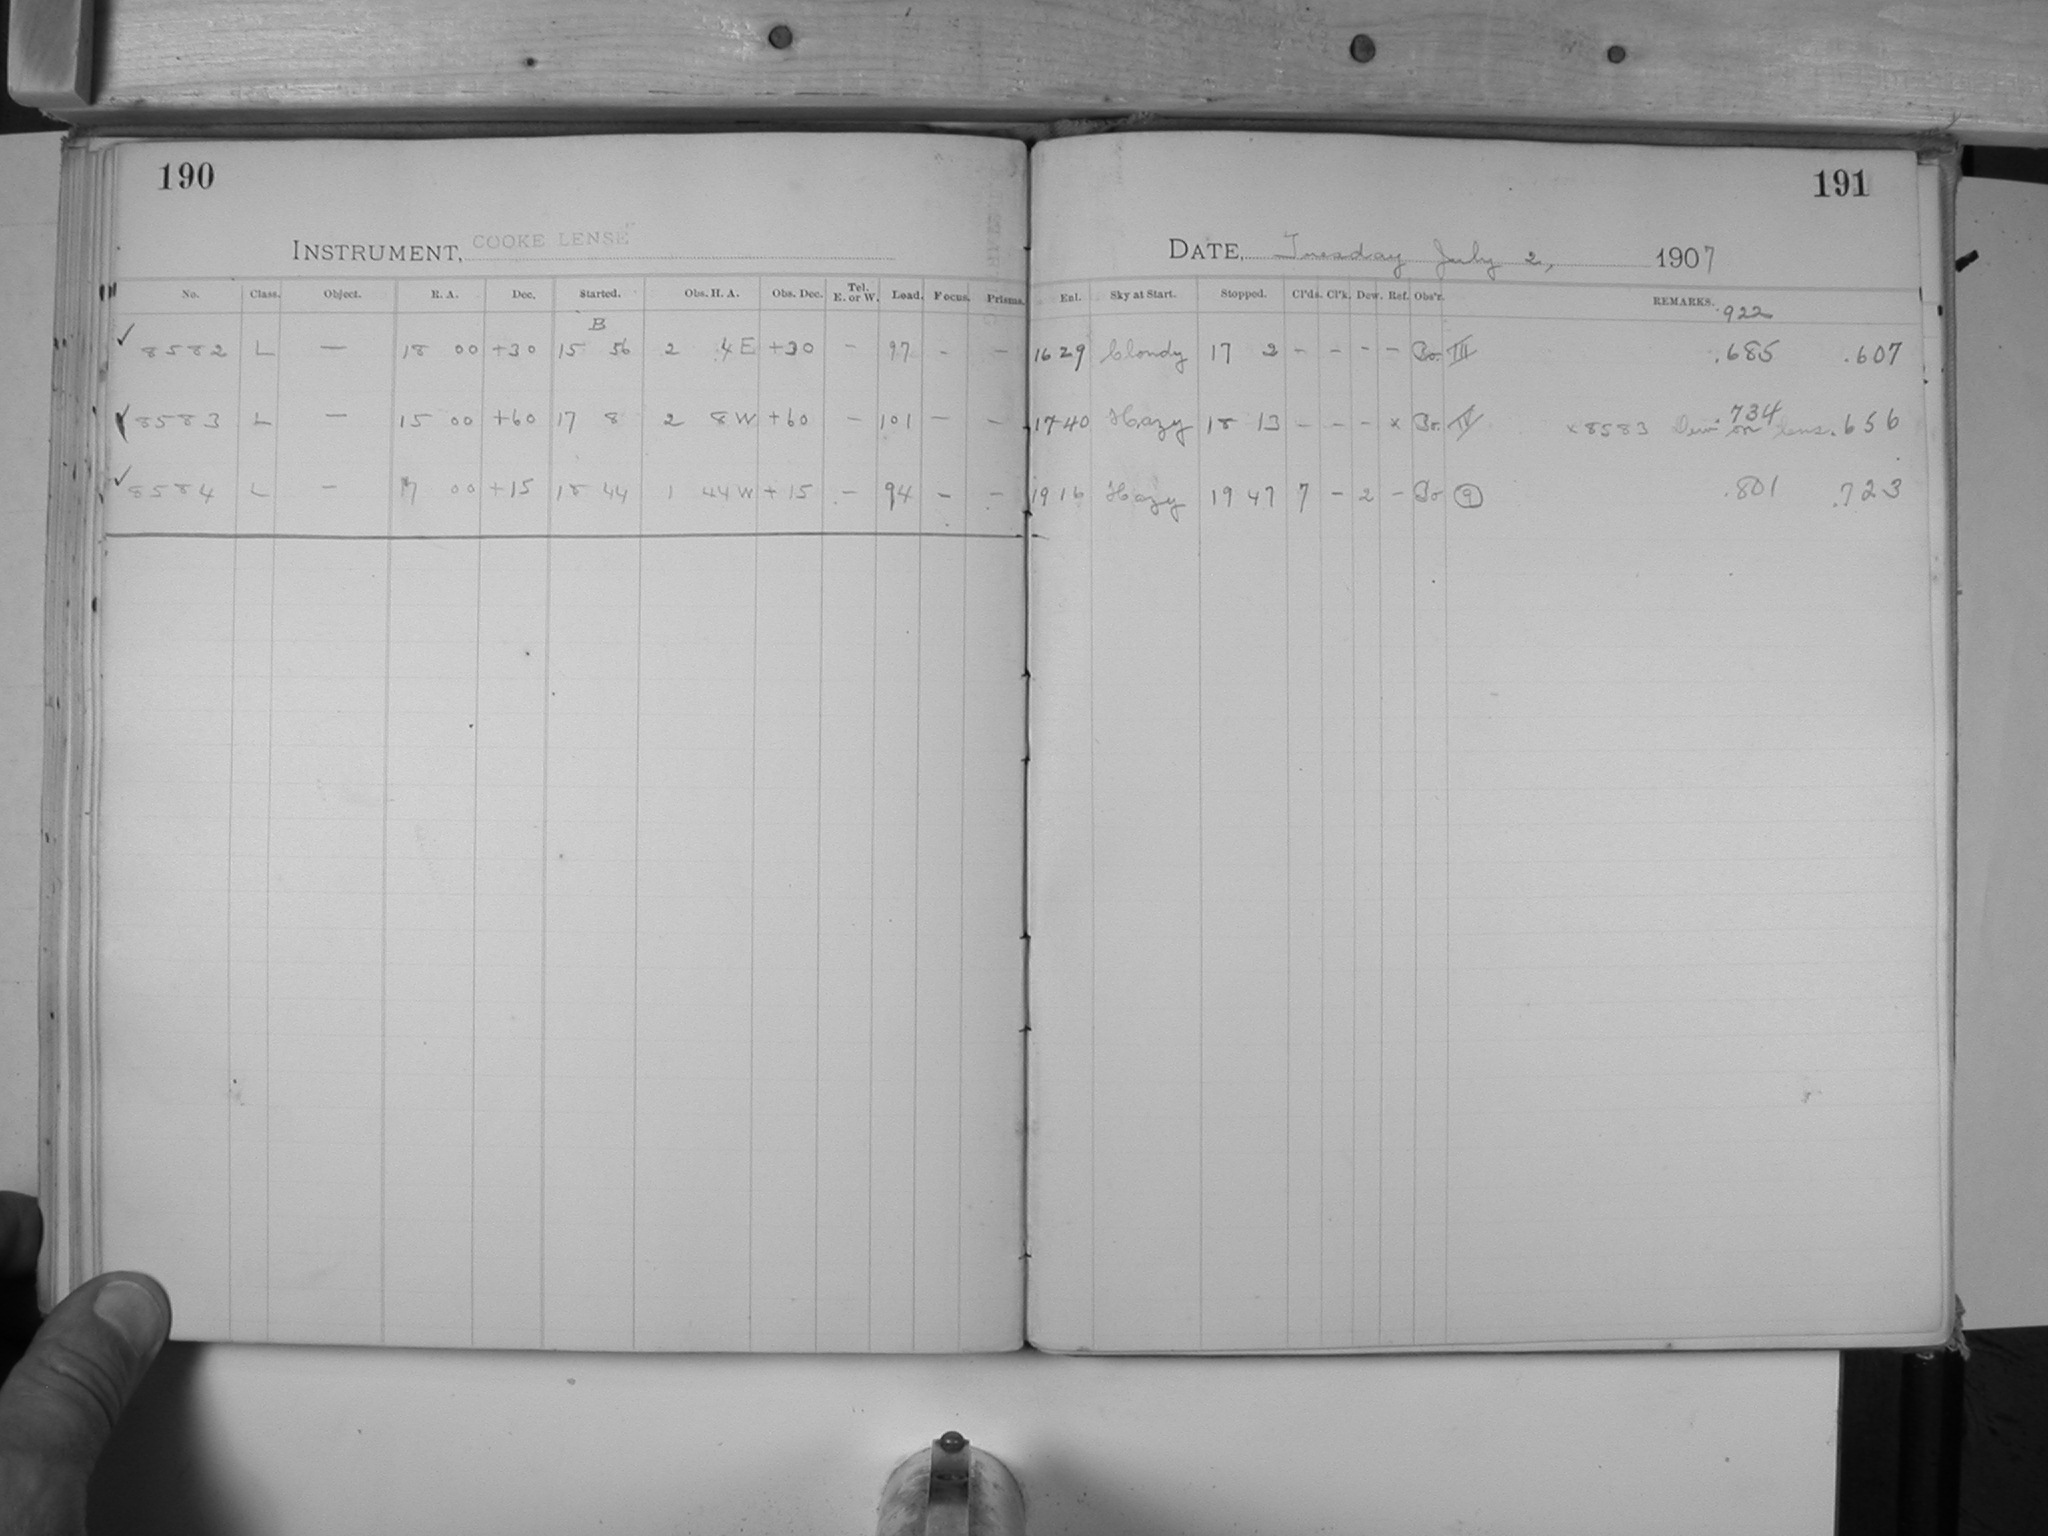 190
INSTRUMENT, COOKE LENSE
No. Class. Object. R. A. Dec. Started. Obs. H. A. Obs. Dec. Tel. E. or W. Load. Focus. Prisms.
B
✓ 8582 L — 18 00 +30 15 56 2 4 E +30 — 97 - —
✓ 8583 L — 15 00 +60 17 8 2 8 W +60 — 101 — —
✓ 8584 L — 17 00 +15 18 44 1 44 W +15 — 94 — —
191
DATE, Tuesday July 2, 1907
Enl. Sky at Start. Stopped. Cl'ds. Cl'k. Dew. Ref. Obs'r. REMARKS.
.922
16 29 Cloudy 17 2 - - - - Bo. III .685 .607
17 40 Hazy 18 13 - - - x Bo. IV x 8583 Dew on lens. .734 .656
19 16 Hazy 19 47 7 - 2 - Bo 9 .801 .723